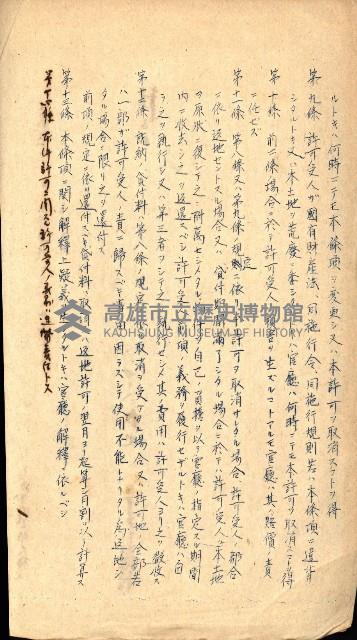 ルトキハ何時ニテモ本條項ヲ変更シ又ハ本許可ヲ取消スコトヲ得
第九條 許可受人ガ國有財産法、同施行令、同施行規則若ハ本條項ニ違背
シタルトキ又ハ本土地ヲ荒廢ニ委シタルトキハ官廳ハ何時ニテモ本許可ヲ取消スコトヲ得
第十條 前二條ノ場合ニ於テ許可受人ニ損害ヲ生ズルコトアルモ官廳ハ其ノ賠償ノ責
ニ任ゼズ
第十一條 第八條又ハ第九條ノ規定ニ依リ許可ヲ取消サレタル場合、許可受人ノ都合
ニ依リ返地セントスル場合又ハ貸付期間満了シタル場合ニ於テハ許可受人ハ本土地
ヲ原状ニ復シ
自己ノ負擔ヲ以テ官廳ノ指定スル期間
内ニ收去シ之ヲ返還スベシ許可受人前項ノ義務ヲ履行セザルトキハ官廳ハ自
ラ之ヲ執行シ又ハ第三者ヲシテ之ヲ執行セシメ其ノ費用ハ許可受人ヨリ之ヲ徴收ス
第十二條 既納ノ貸付料ハ第八條ノ規定ニ依リ取消ヲ受ケタル場合又ハ許可地ノ全部若
ハ一部ガ許可受人ノ責ニ歸スベキ事由ニ因ラズシテ使用不能トナリタル為返地シ
タル場合ニ限リ之ヲ還付ス
前項ノ規定ニ依リ還付スベキ貸付料ハ取消又ハ返地許可ノ翌月ヲ起算シ月割ヲ以テ計算ス
第十三條 本條項ニ関シ解釋上疑義ヲ生ジタルトキハ官廳ノ解釋ニ依ルベシ
高雄市立歷史博物館
KAOHSIUNG MUSEUM OF HISTORY